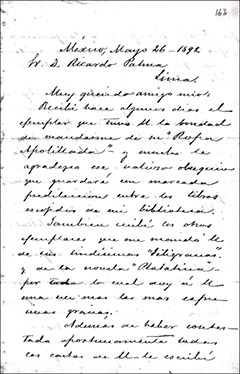 163
México, Mayo 26-1892
Sr. D. Ricardo Palma
Lima.
Muy querido amigo mio:
Recibí hace algunos dias el
ejemplar que tuvo U. la bondad
de mandarme de su "Ropa
Apolillada" y mucho le
agradezco ese valioso obsequio
que guardaré con marcada
predilección entre los libros
escogidos de mi biblioteca.
Tambien recibí los otros
ejemplares que me mandó U.
de sus lindísimas "Filigranas"
y de la novela
por todo lo cual doy á U.
una vez mas las mas espre
sivas gracias.
Ademas de haber contes-
tado oportunamente todas
las cartas de U. le escribí